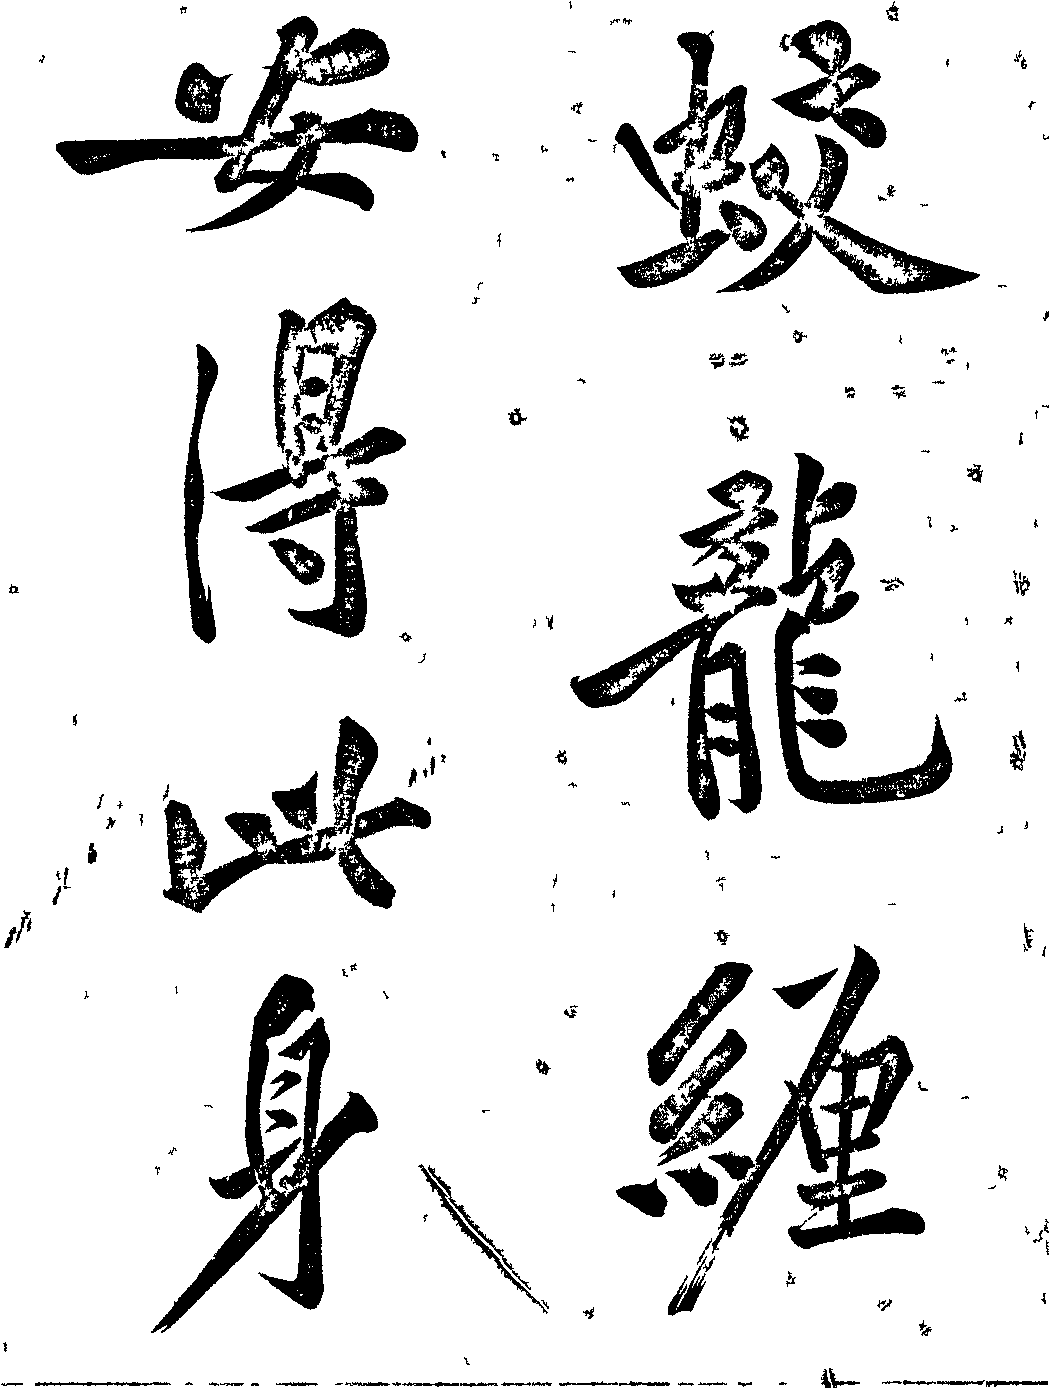 蛟龍纏
安得此身